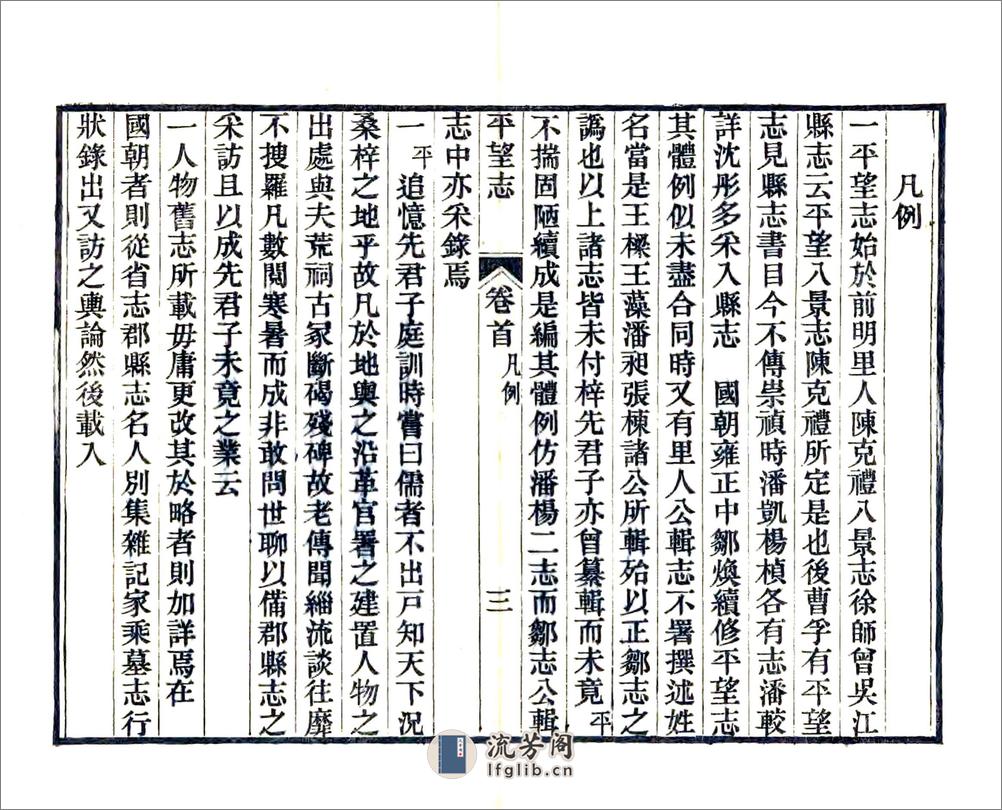 凡例
一平望志始於前明里人陳克禮八景志徐師曾吳江
縣志云平望八景志陳克禮所定是也後曹孚有平望
志見縣志書目今不傳崇禎時潘凱楊楨各有志潘較
詳沈彤多采入縣志　國朝雍正中鄒煥續修平望志
其體例似未盡合同時又有里人公輯志不署撰述姓
名當是王樑王藻潘昶張棟諸公所輯殆以正鄒志之
譌也以上諸志皆未付梓先君子亦曾纂輯而未竟平
不揣固陋續成是編其體例仿潘楊二志而鄒志公輯
平望志　卷首　凡例　三
志中亦采錄焉
一平追憶先君子庭訓時嘗曰儒者不出戸知天下況
桑梓之地乎故凡於地輿之沿革官署之建置人物之
出處與夫荒祠古冢斷碣殘碑故老傳聞緇流談往靡
不搜羅凡數閱寒暑而成非敢問世聊以備郡縣志之
采訪且以成先君子未竟之業云
一人物舊志所載毋庸更改其於略者則加詳焉在
國朝者則從省志郡縣志名人別集雜記家乘墓志行
狀錄出又訪之輿論然後載入
流芳阁
lfglib.cn